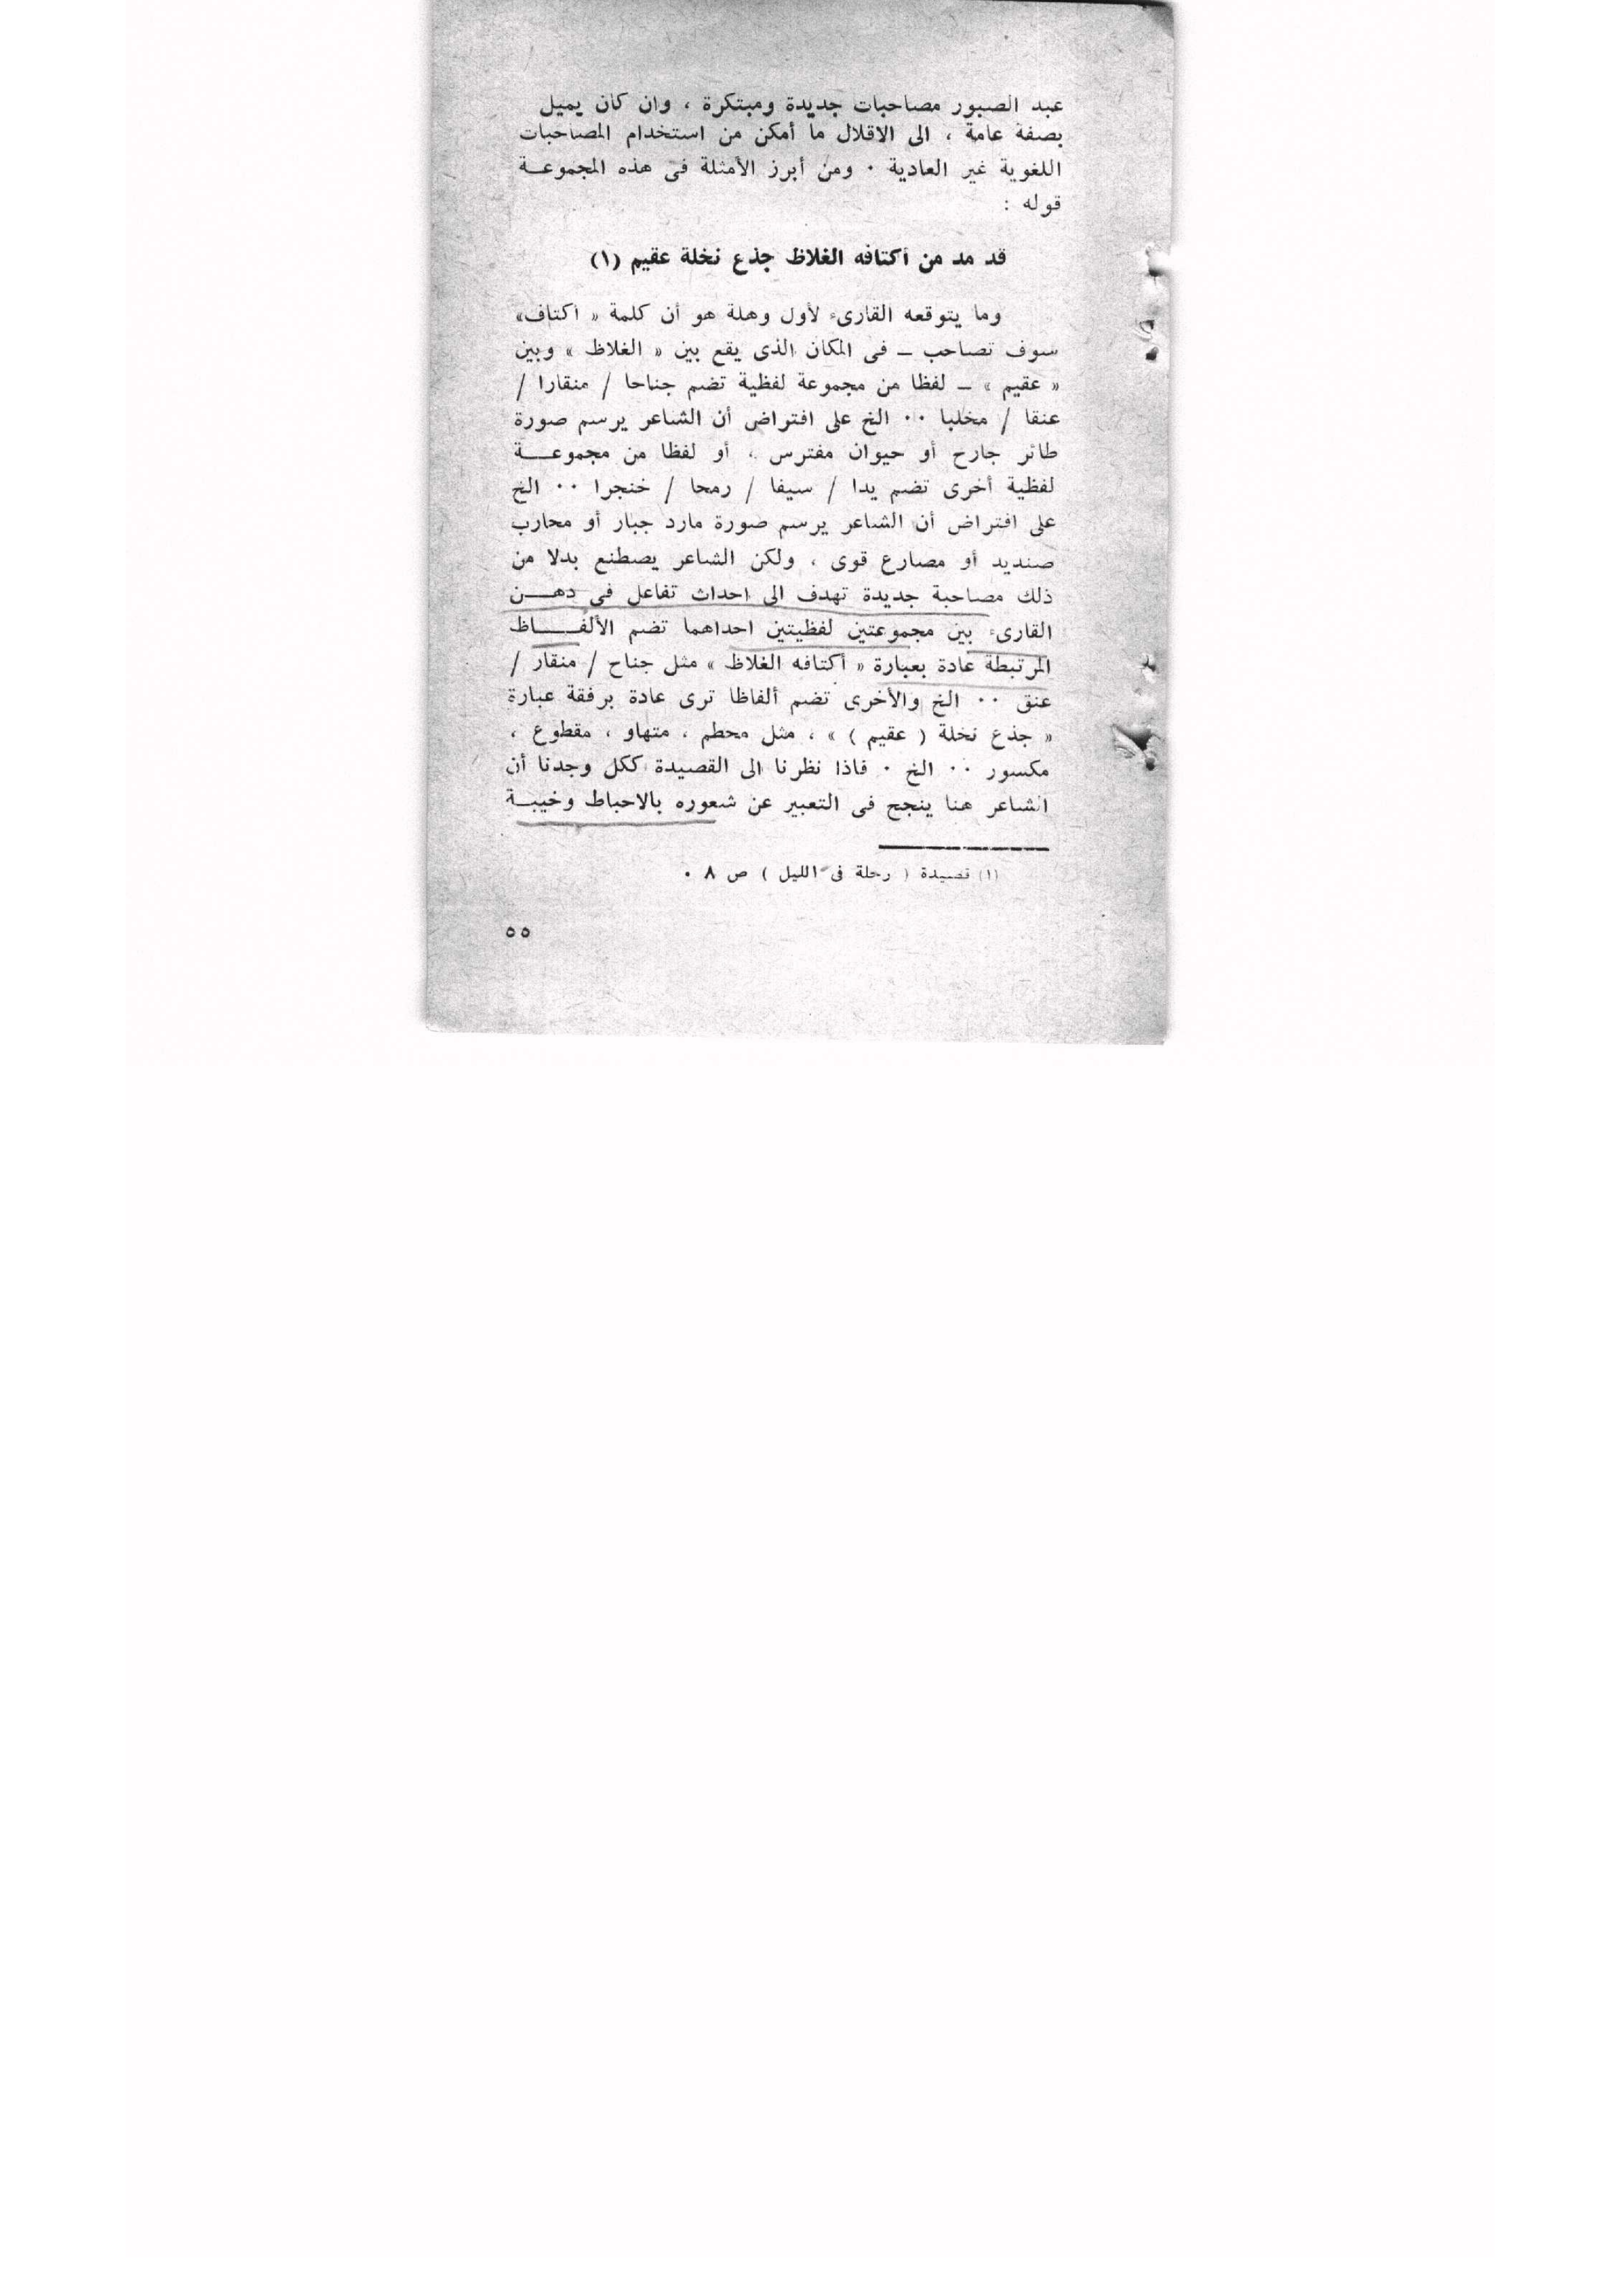 عبد الصبور مصاحبات جديدة ومبتكرة ، وان كان يميل
بصفة عامة ، الى الاقلال ما أمكن من استخدام المصاحبات
اللغوية غير العادية ٠ ومن أبرز الأمثلة فى هذه المجموعة
قوله :
قد مد من أكتافه الغلاظ جذع نخلة عقيم (١)
وما يتوقعه القارىء لأول وهلة هو أن كلمة « أكتاف»
سوف تصاحب ــ فى المكان الذى يقع بين « الغلاظ » وبين
« عقيم » ــ لفظا من مجموعة لفظية تضم جناحا / منقارا /
عنقا / مخلبا ٠٠ الخ على افتراض أن الشاعر يرسم صورة
طائر جارح أو حيوان مفترس ، أو لفظا من مجموعة
لفظية أخرى تضم يدا / سيفا / رمحا / خنجرا ٠٠ الخ
على افتراض أن الشاعر يرسم صورة مارد جبار أو محارب
صنديد أو مصارع قوى ، ولكن الشاعر يصطنع بدلا من
ذلك مصاحبة جديدة تهدف الى احداث تفاعل فى ذهن
القارىء بين مجموعتين لفظيتين احداهما تضم الألفاظ
المرتبطة عادة بعبارة « أكتافه الغلاظ » مثل جناح / منقار /
عنق ٠٠ الخ والأخرى تضم ألفاظا ترى عادة برفقة عبارة
« جذع نخلة ( عقيم ) » ، مثل محطم ، متهاو ، مقطوع ،
مكسور ٠٠ الخ ٠ فاذا نظرنا الى القصيدة ككل وجدنا أن
الشاعر هنا ينجح فى التعبير عن شعوره بالاحباط وخيبة
(١) قصيدة ( رحلة فى الليل ) ص ٨ ٠
٥٥